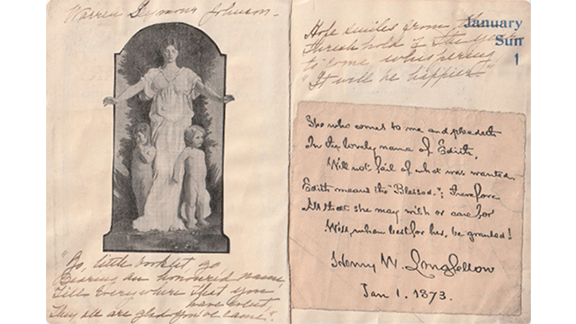 Warren Seymour Johnson -
"Go, little booklet, go
Bearing an honoured name,
Till everywhere that you
have went
They all are glad you've came".
January
Sun
1
Hope smiles from the
threshhold of the year
to come whispering
"It will be happier"
She who comes to me and pleadeth
In the lovely name of Edith,
Will not fail of what was wanted.
Edith means the "Blessed."; therefore
All that she may wish or care for
Will, when best for her, be granted!
Henry W. Longfellow
Jan 1. 1873.